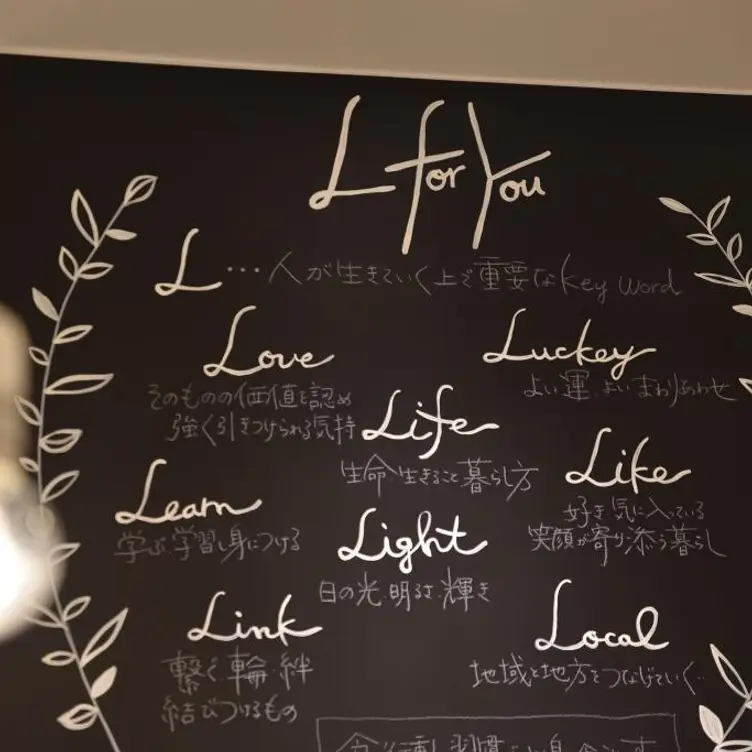 L for You
L…人が生きていく上で重要なkey word
Love
そのものの価値を認め
強く引きつけられる気持
Luckey
よい運・よいまわりあわせ
Life
生命・生きること・暮らし方
Like
好き・気に入っている
笑顔が寄り添う暮らし
Learn
学ぶ・学習し身につける
Light
日の光・明るさ・輝き
Link
繋ぐ・輪・絆
結びつけるもの
Local
地域と地方をつなげていく…